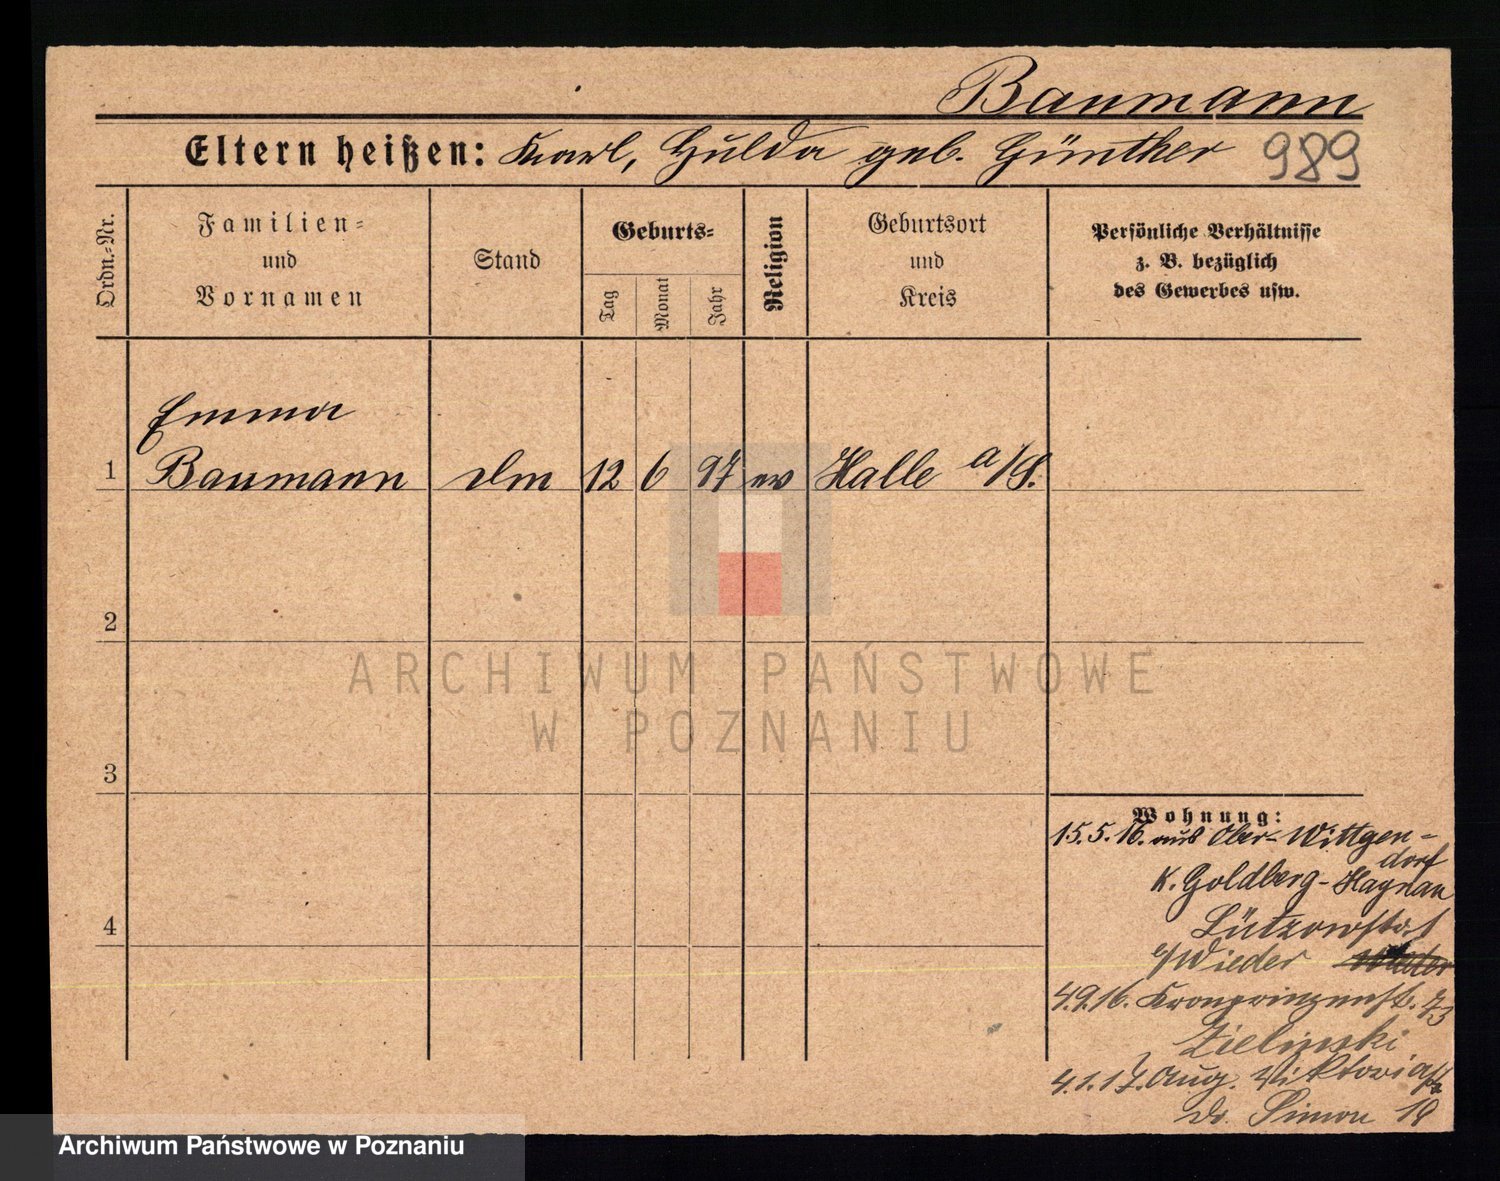 Baumann
Eltern heißen: Karl, Hulda geb. Günther 989
Ordn.-Nr.
Familien-
und
Vornamen
Stand
Geburts-
Tag
Monat
Jahr
Religion
Geburtsort
und
Kreis
Persönliche Verhältnisse
z. B. bezüglich
des Gewerbes usw.
Emma
1 Baumann 12 6 97 ev Halle a/S.
2
3
4
Wohnung:
15.5.16. aus Ober-Wittgen-
dorf
K. Goldberg-Haynau
Lützowstr. 1
b/Wieder
4.9.16. Kronprinzenst. 73
Zielinski
4.1.17. Aug. Viktoriast
Dr. Simon 18
ARCHIWUM PAŃSTWOWE
W POZNANIU
Archiwum Państwowe w Poznaniu